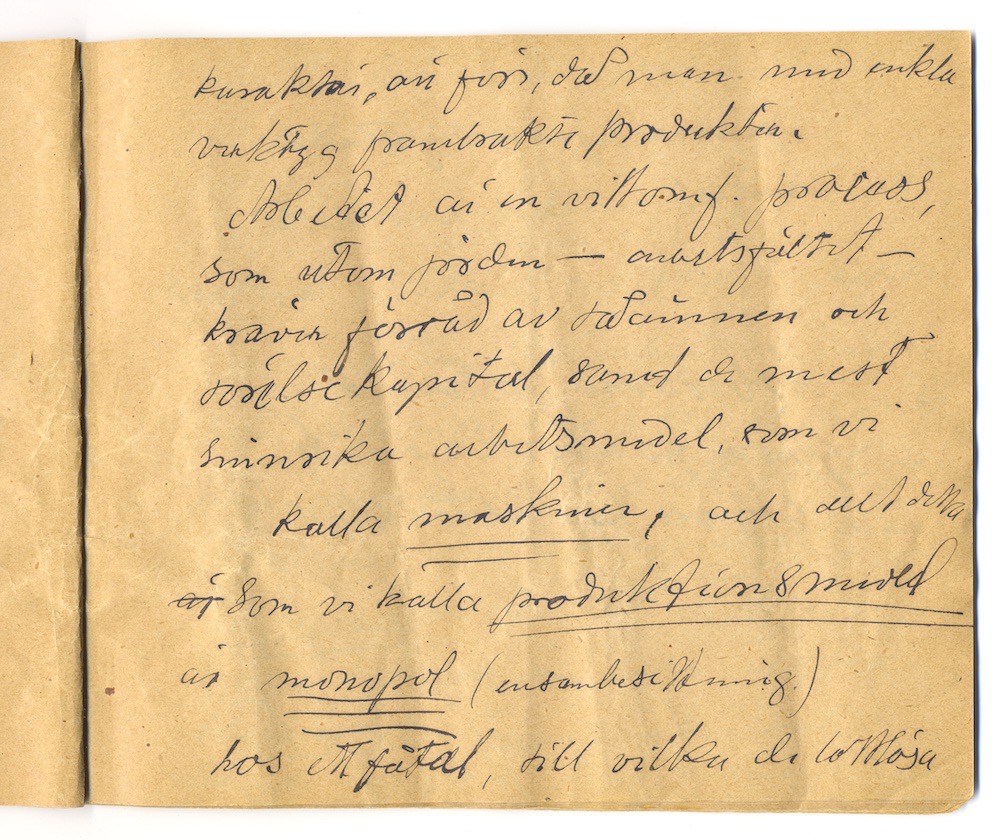 karaktär, än förr, då man med enkla
verktyg frambrakte produkten.
Arbetet är en vittomf. process,
som utom jorden — arbetsfältet —
kräver förråd av råämnen och
rörelsekapital, samt de mest
sinnrika arbetsmedel, som vi
kalla maskiner, och allt detta
som vi kalla produktionsmedel
är monopol (ensambesittning.)
hos ett fåtal, till vilka de lottlösa